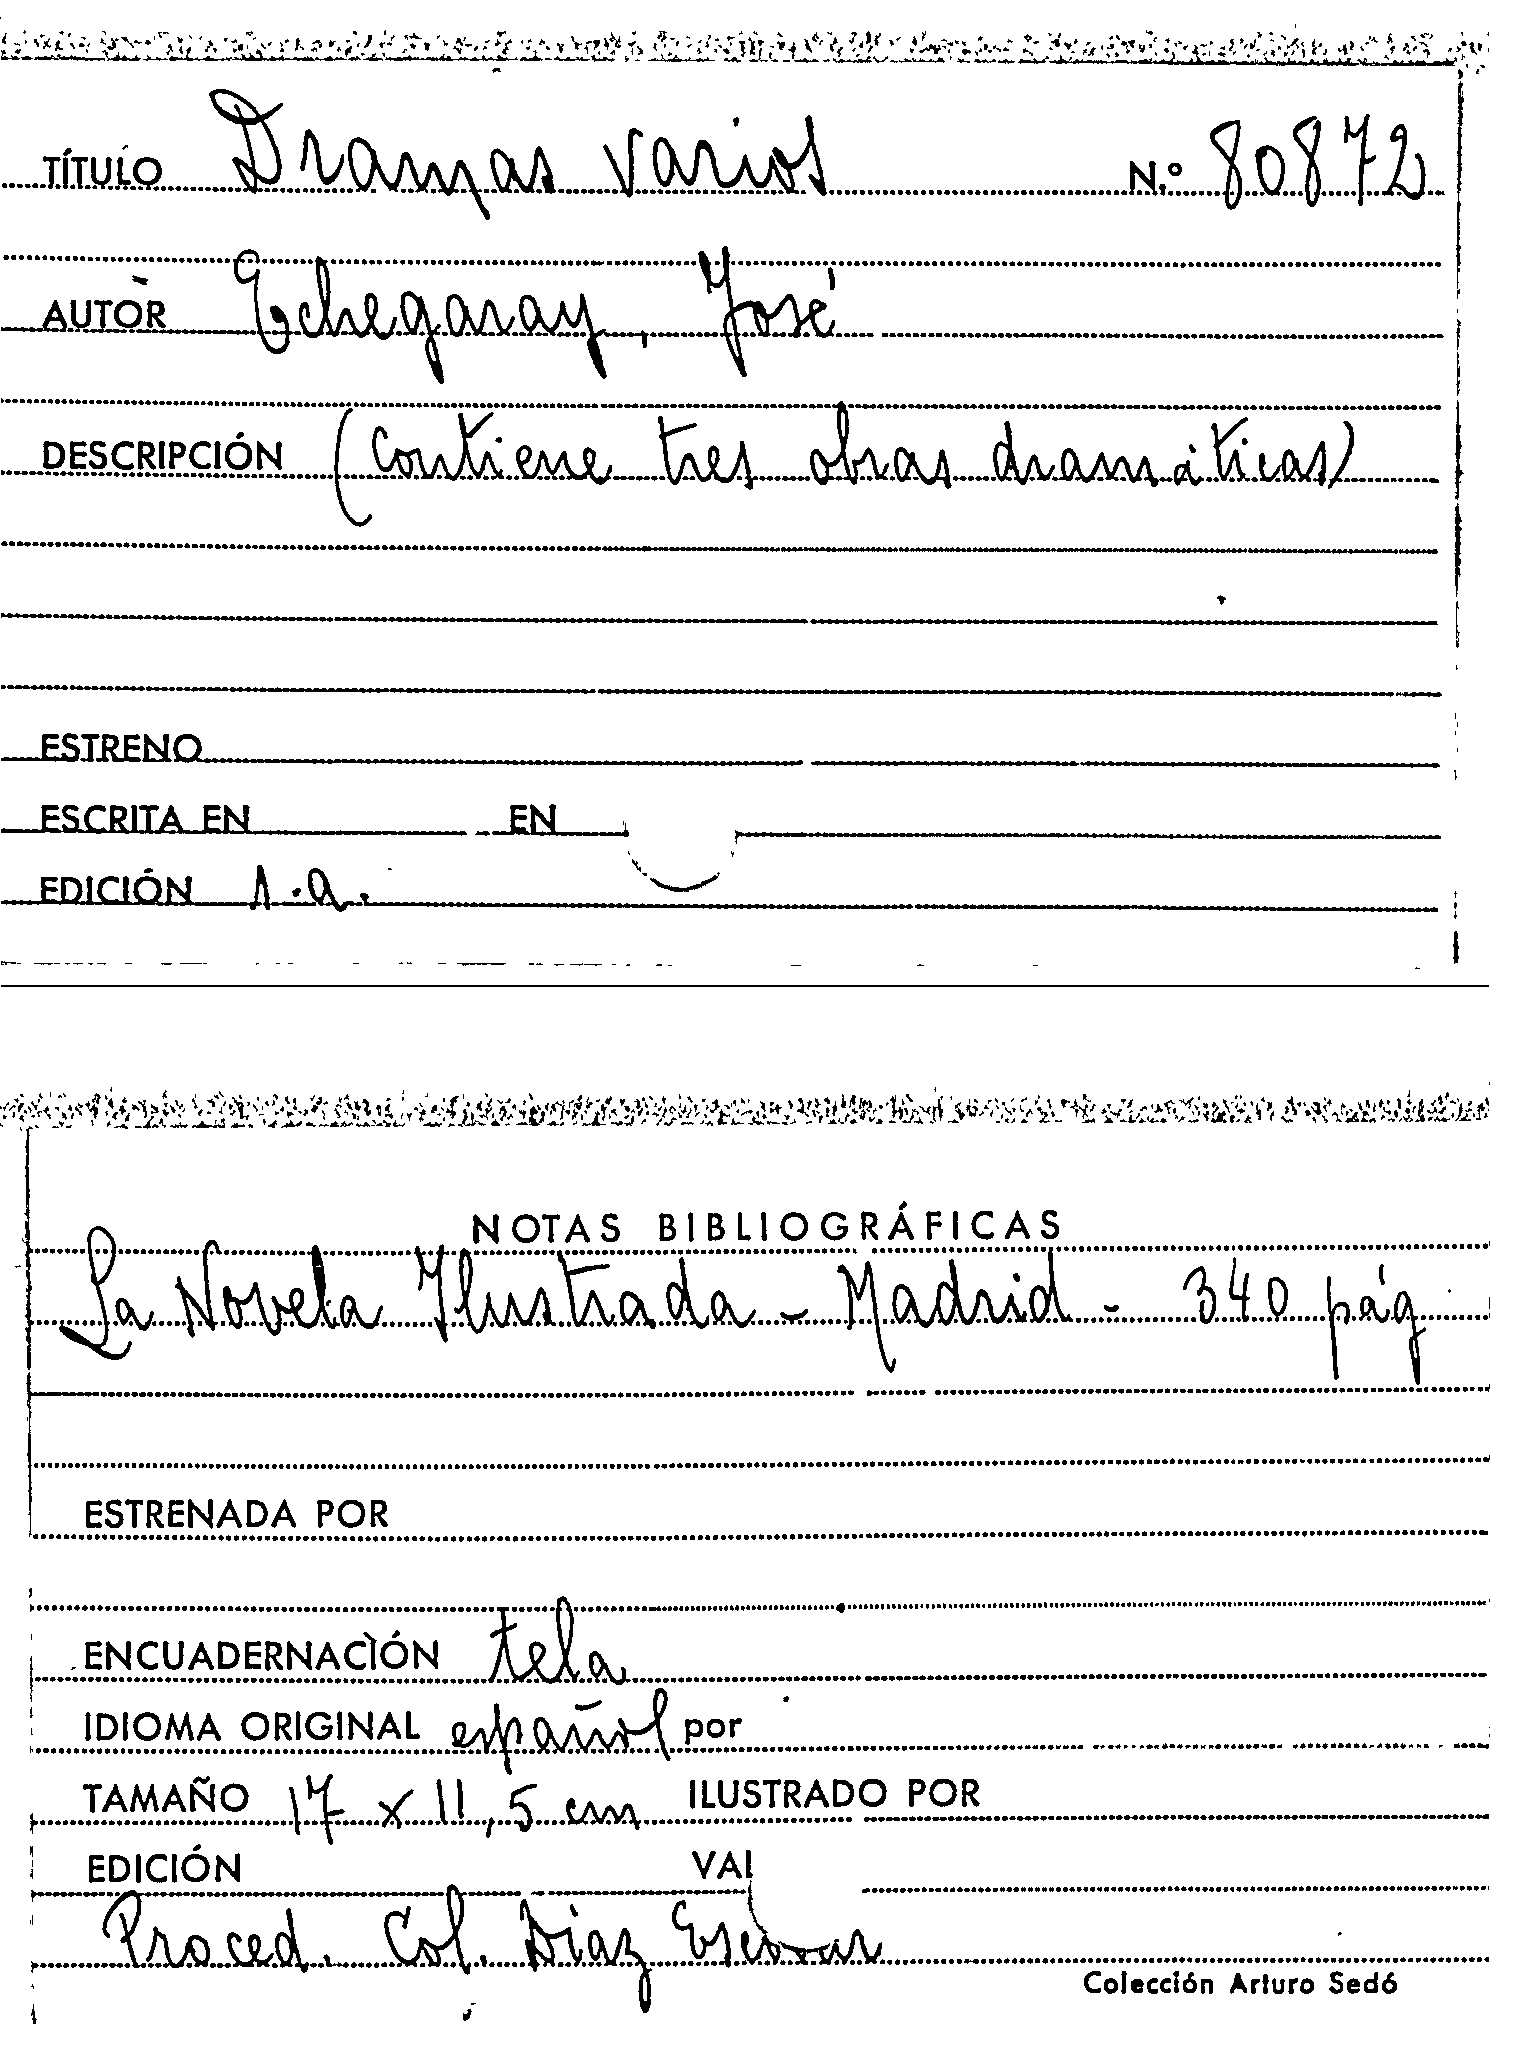 TÍTULO Dramas varios N.º 80872
AUTOR Echegaray, José
DESCRIPCIÓN (Contiene tres obras dramáticas)
ESTRENO
ESCRITA EN EN
EDICIÓN s.a.
NOTAS BIBLIOGRÁFICAS
La Novela Ilustrada - Madrid - 340 pág
ESTRENADA POR
ENCUADERNACIÓN tela
IDIOMA ORIGINAL español por
TAMAÑO 17 x 11,5 cm ILUSTRADO POR
EDICIÓN VAL
Proced. Col. Díaz Escovar
Colección Arturo Sedó